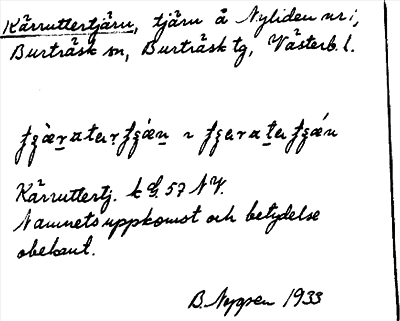 Kärruttertjärn, tjärn å Nyliden nr 1,
Burträsk sn, Burträsk tg, Västerb. l.
Kärruttertj. k bl. 57 NV.
Namnets uppkomst och betydelse
obekant.
B. Nygren 1933